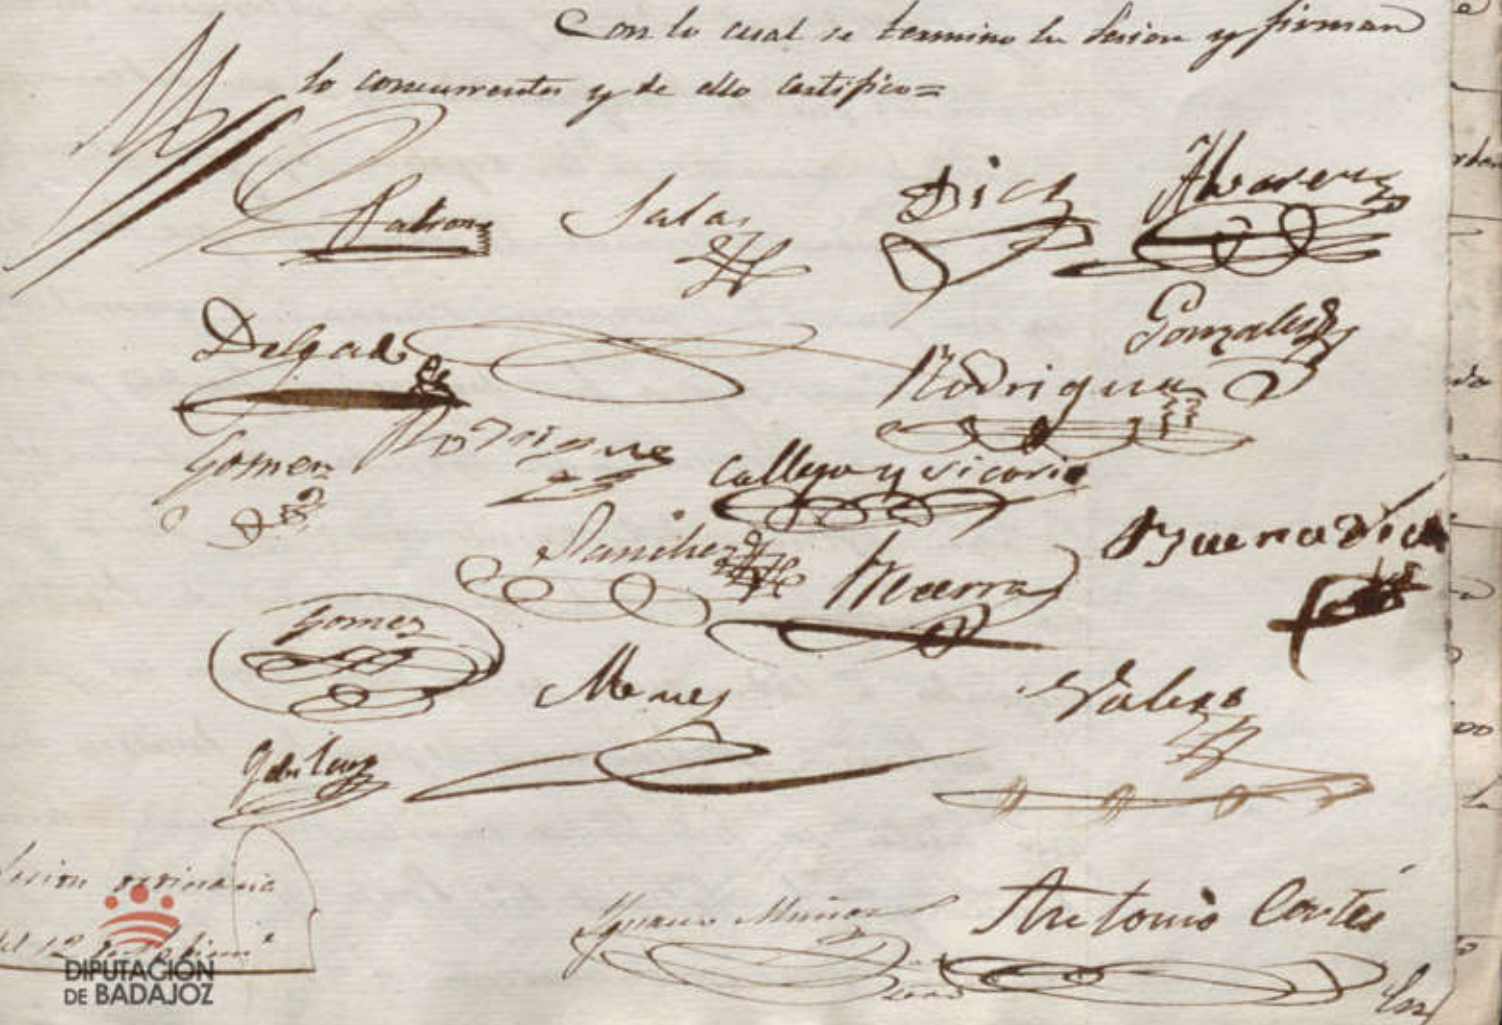 Con lo cual se termino la sesion y firman
lo concurrentes y de ello certifico=
Salas
Diez
Alvarez
Delgado
Gonzalez
Rodriguez
Gomez
Rodrigue
Calleja y Vicario
Sanchez
Becerra
Buenadicha
Gomez
Menes
Valero
Sesion ordinaria
del 12
Ignacio Muñoz
Antonio Cortés
DIPUTACIÓN
DE BADAJOZ
En